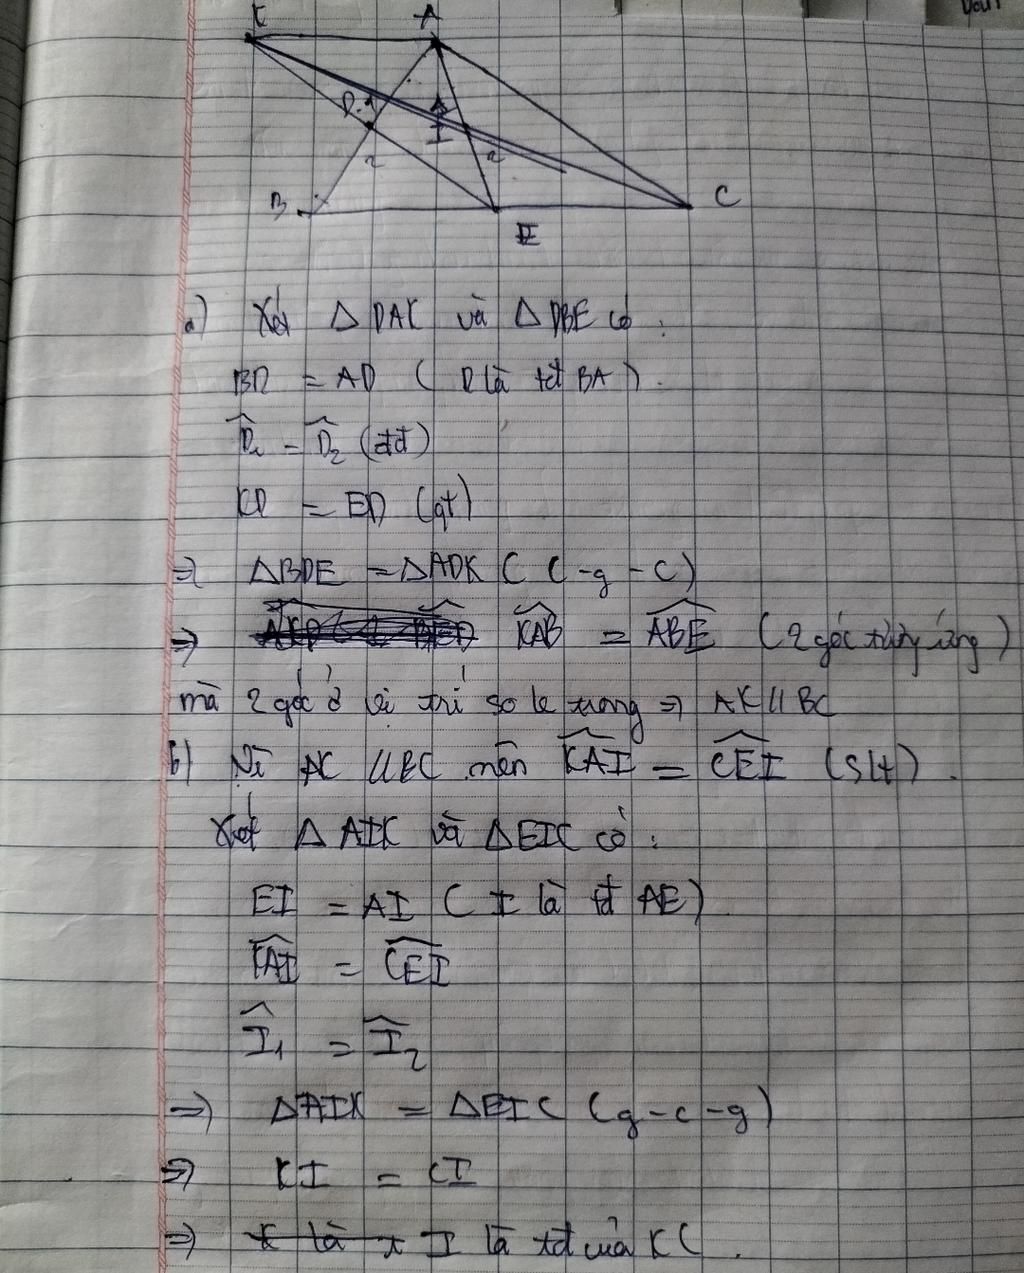 K A
D 1
1
I
2 2
B E C
a) Xét Δ DAK và Δ DBE có :
BD = AD ( D là tđ BA ) .
D̂₁ = D̂₂ (đđ)
KD = ED (gt)
=> ΔBDE = ΔADK ( c - g - c)
=> KAB = ABE ( 2 góc tương ứng )
mà 2 góc ở vị trí so le trong => AK // BC
b) Vì AK // BC nên KAI = CEI (slt) .
Xét Δ AIK và Δ EIC có :
EI = AI ( I là tđ AE )
KAI = CEI
Î₁ = Î₂
=> ΔAIK = ΔEIC (g - c - g)
=> KI = CI
=> I là tđ của KC .